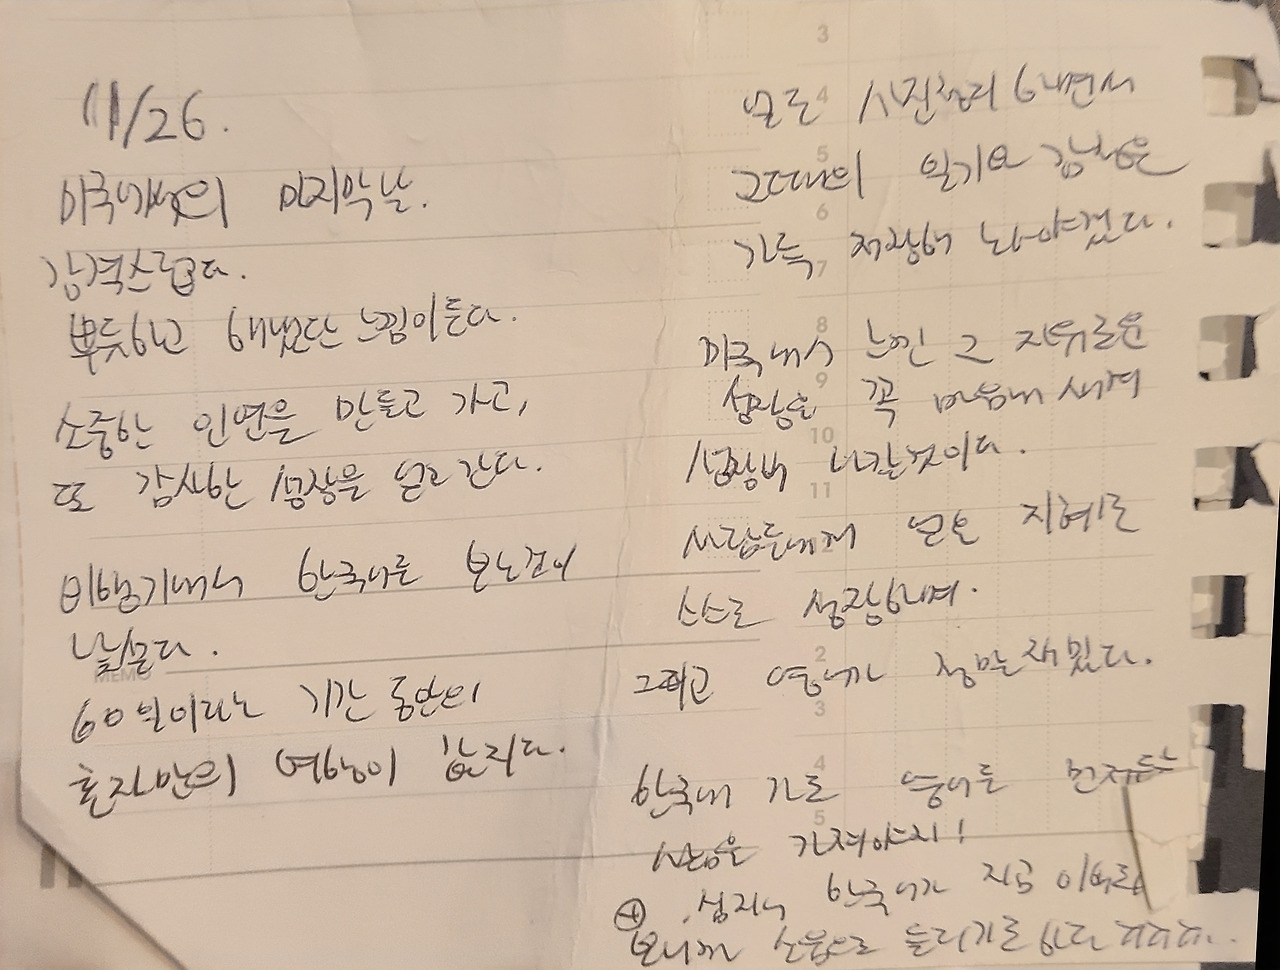 11/26.
미국에서의 마지막날.
감격스럽다.
뿌듯하고 해냈단 느낌이든다.
소중한 인연을 만들고 가고,
또 감사한 성장을 얻고 간다.
비행기에서 한국어를 보는건이
낯설다.
MEMO
60일이라는 기간 동안의
혼자만의 여행이 값지다.
3
4
얼른 사진정리 해내면서
5
그때의 일기와 감상을
6
가득 저장해 놔야겠다.
7
8
미국에서 느낀 그 자유로운
9
성장을 꼭 마음에 새겨
10
성장해 나갈것이다.
11
사람들에게 얻은 지혜로
스스로 성장하며.
2
그리고 영어가 정말 재밌다.
3
4
한국에 가도 영어를
5
가져야지!
+ 심지어 한국어가 지금
보니까 소음으로 들리기도 한다